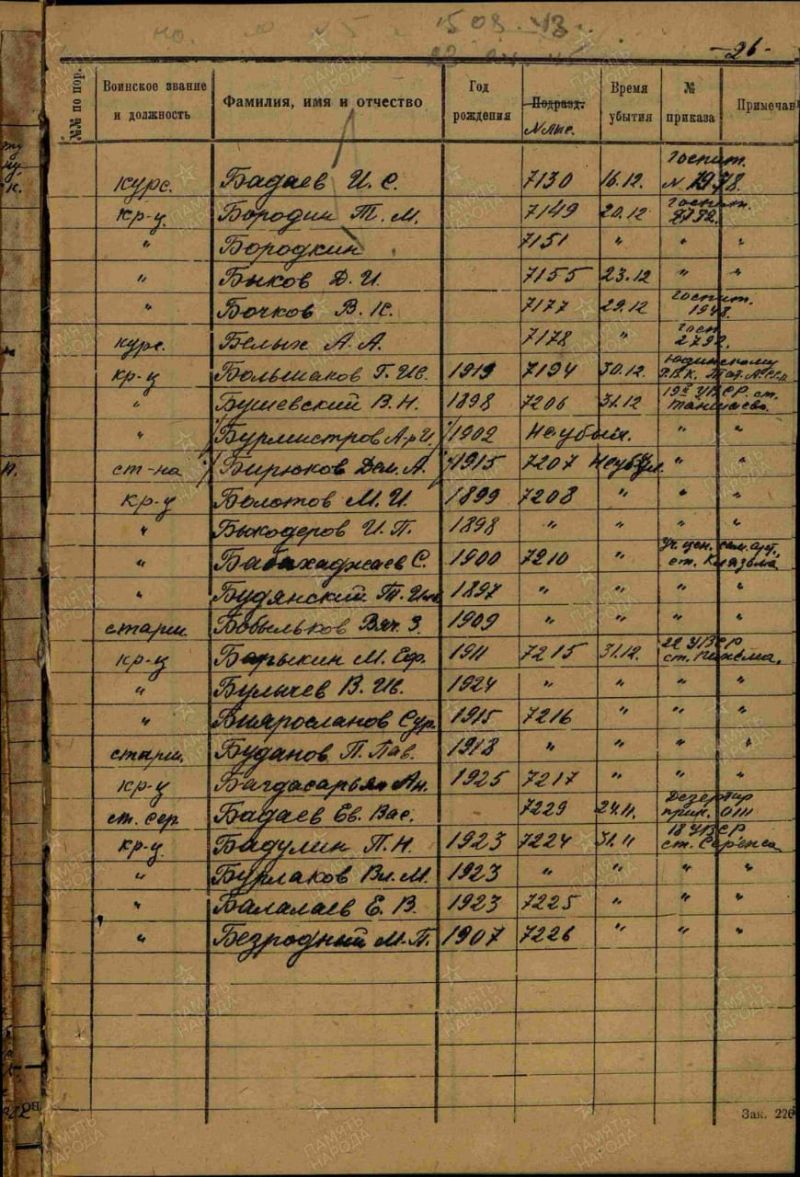 но.
15 08 43
-26-
№№ по пор. Воинское звание и должность Фамилия, имя и отчество Год рождения Подразд. Время убытия № приказа Примечан
Госпит.
курс. Бадаев И. С. 7130 16.12. N 1978.
Госпит.
кр-ц Бородин Т. М. 7149 20.12 2792.
" Бородкин 7151 " " "
" Быков Д. И. 7155 23.12 " "
" Бочков В. К. 7177 29.12 Госпит. 1948.
курс. Белых А. А. 7178 " Госп 2792.
кр-ц Большаков Г. Ив. 1919 7194 30.12.
" Бушевский В. Н. 1898 7206 31.12 ст.
" Бурмистров А. И. 1902 Не убыл. " "
ст-на Бирюков Дем. А. 1915 7207 Не убыл " "
кр-ц Болотов М. И. 1899 7208 " " "
" Быкодеров И. П. 1898 " " " "
" Бабахаджаев С. 1900 7210 " ст.
" Будянский Т. 1897 " " " "
старш. Бобыльков Вяч. З. 1909 " " " "
кр-ц Барыкин М. Сер. 1911 7215 31.12. 22 УВСР ст.
" Булычев В. Ив. 1924 " " " "
" Бияросланов Сур. 1915 7216 " " "
старш. Буданов П. Пав. 1918 " " " "
кр-ц Багдасарьян Ан. 1925 7217 " " "
ст. сер Бадаев Ев. Вас. 7229 24.11. Дезертир
кр-ц Бадулин П. Н. 1923 7224 31 " 18 УВСР ст.
" Бурлаков Вл. М. 1923 " " " "
" Балалаев Е. В. 1923 7225 " " "
" Безродный М. П. 1907 7226 " " "
Зак. 226
ПАМЯТЬ НАРОДА